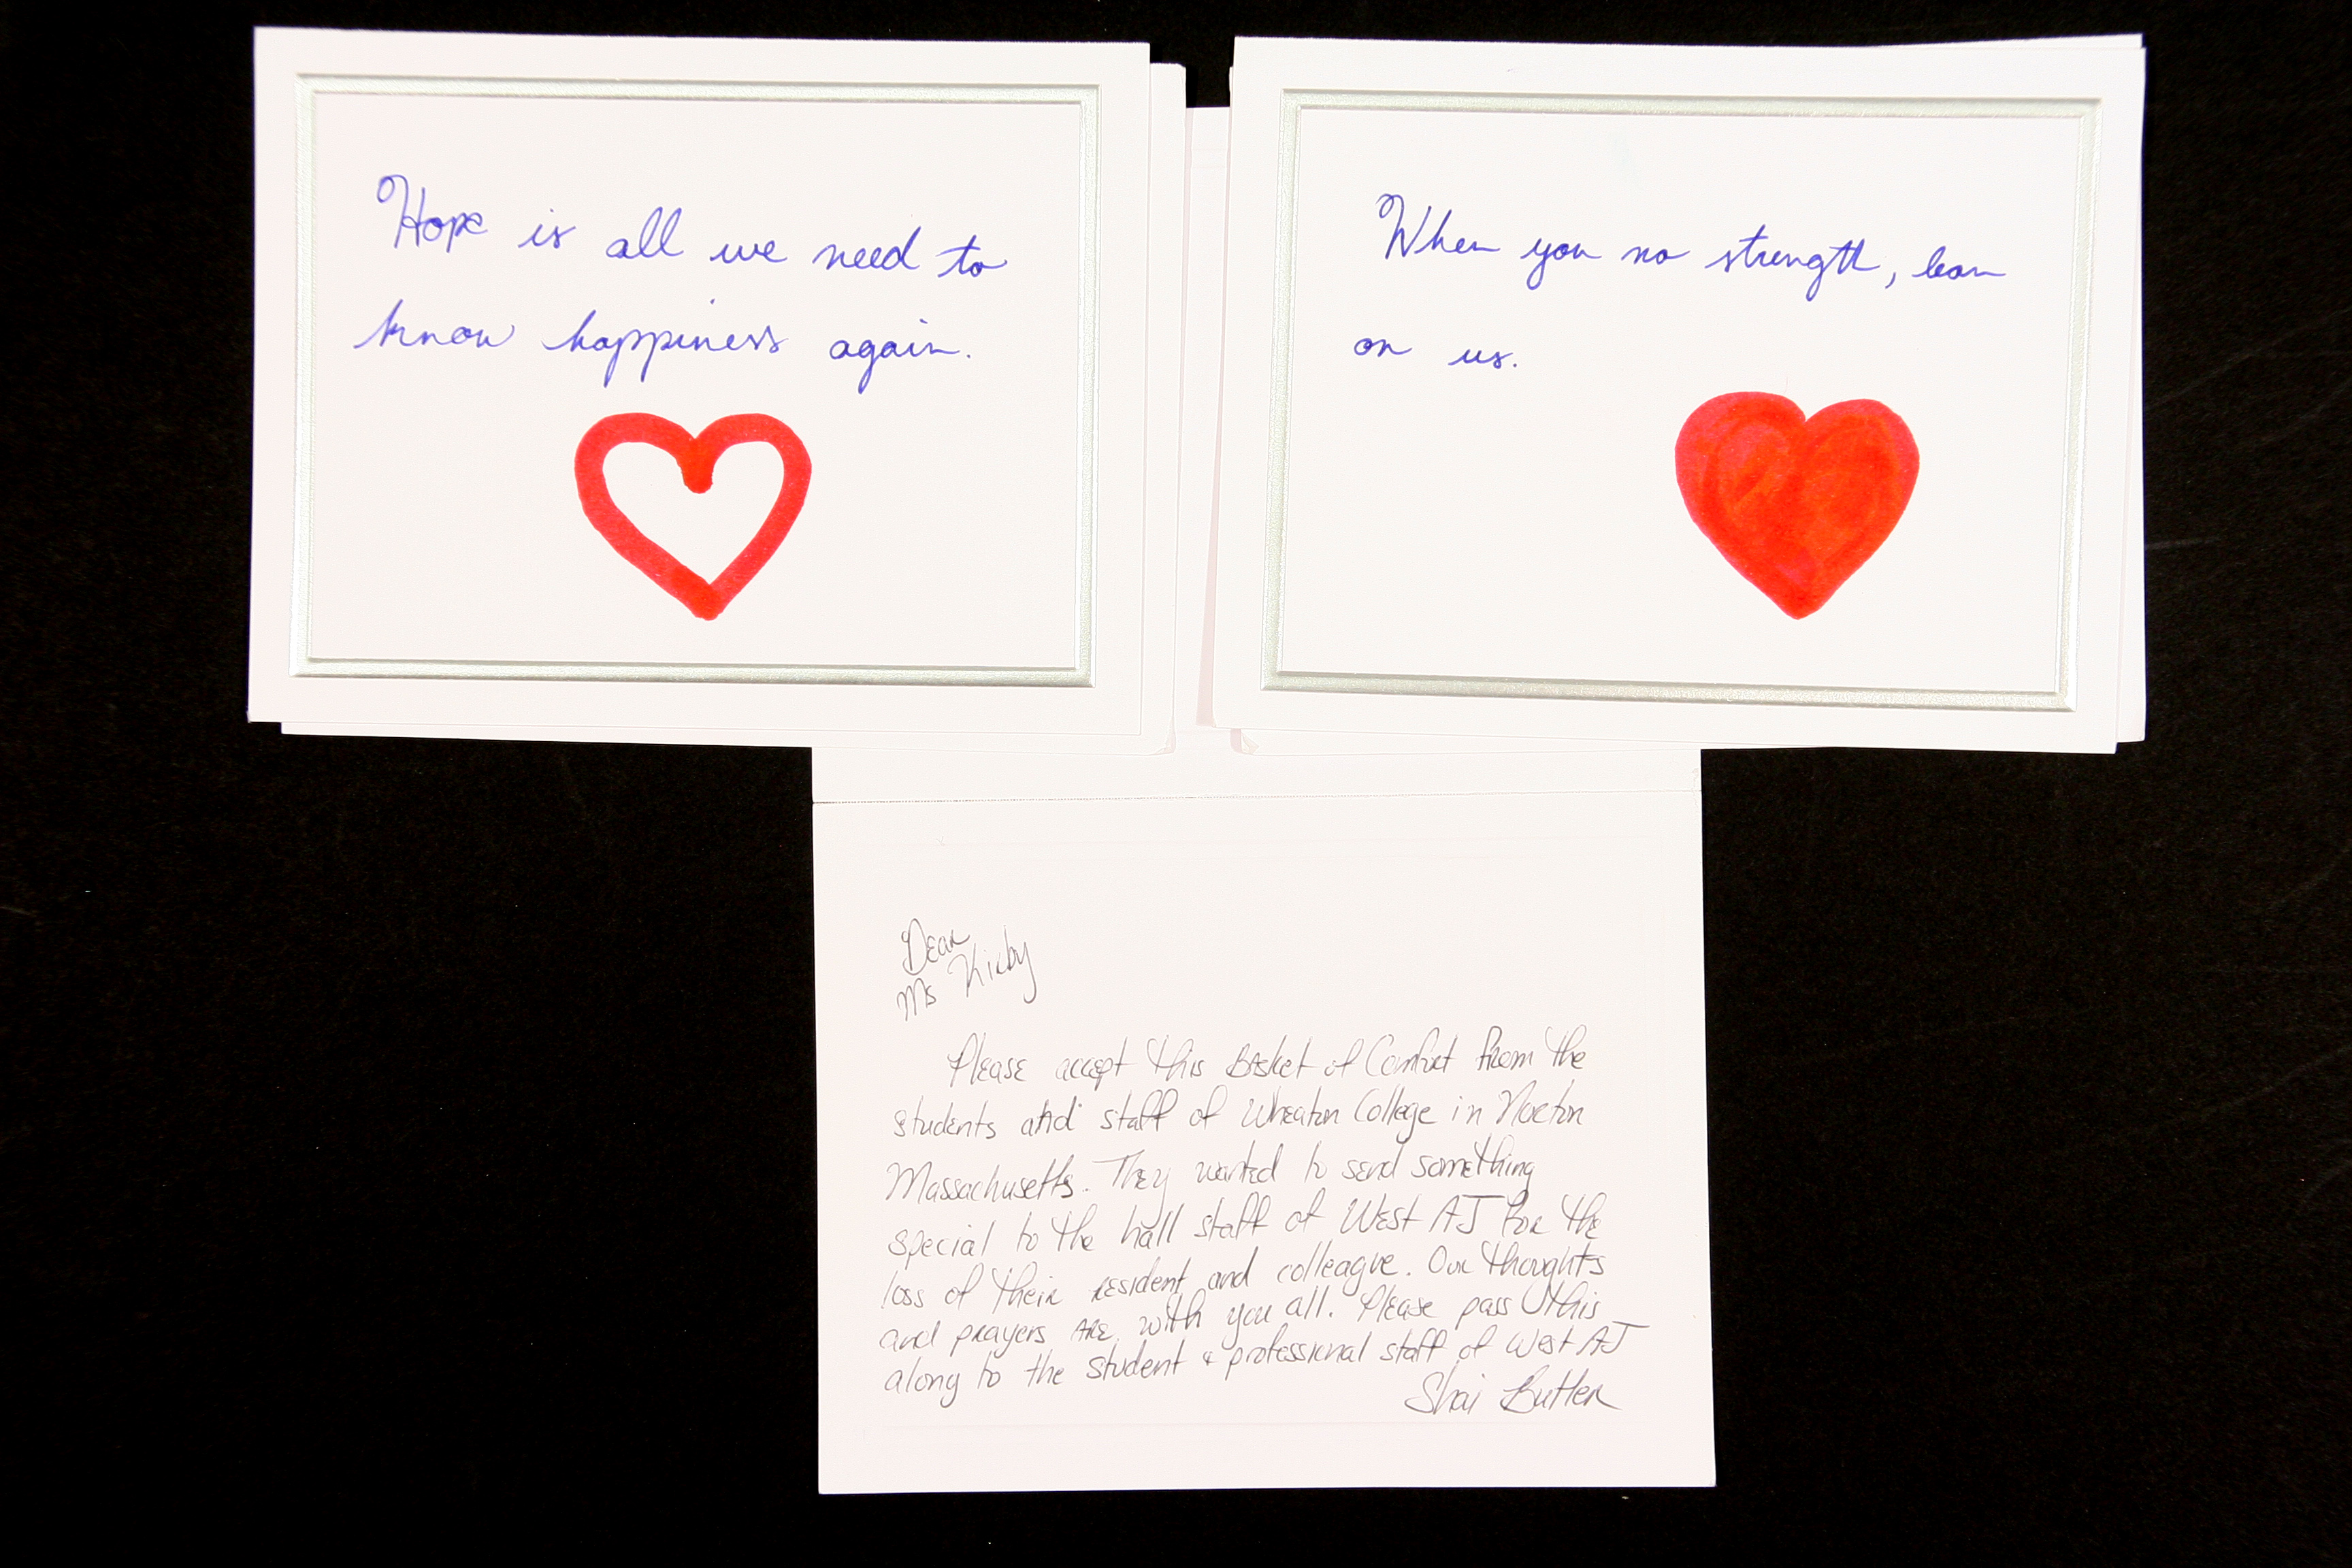 Hope is all we need to
know happiness again.
When you no strength, lean
on us.
Dear
Ms Kirby
Please accept this Basket of Comfort from the
students and staff of Wheaton College in Norton
Massachusetts. They wanted to send something
special to the hall staff of West AJ for the
loss of their resident and colleague. Our thoughts
and prayers are with you all. Please pass this
along to the student & professional staff of West AJ
Shai Butler